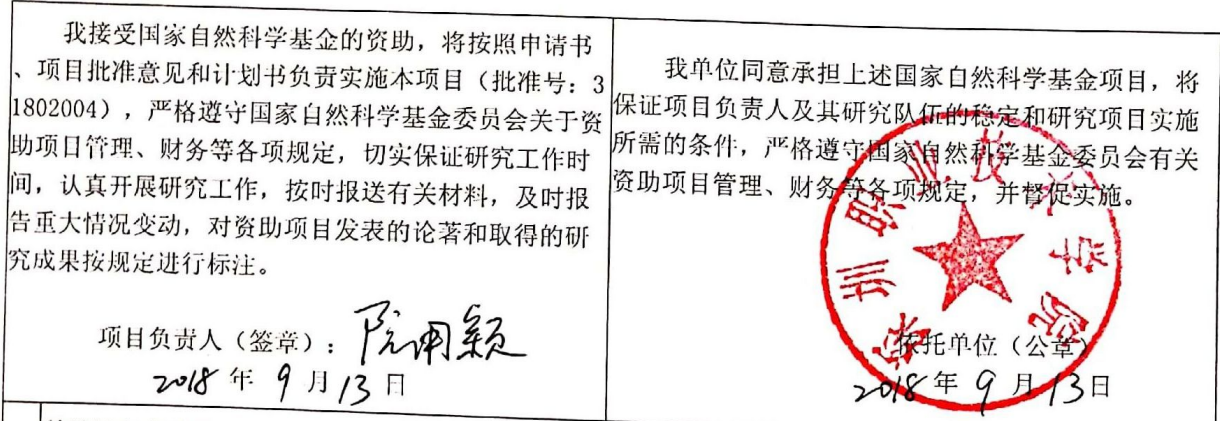 我接受国家自然科学基金的资助，将按照申请书
、项目批准意见和计划书负责实施本项目（批准号：3
1802004），严格遵守国家自然科学基金委员会关于资
助项目管理、财务等各项规定，切实保证研究工作时
间，认真开展研究工作，按时报送有关材料，及时报
告重大情况变动，对资助项目发表的论著和取得的研
究成果按规定进行标注。
项目负责人（签章）：
2018 年 9 月 13 日
我单位同意承担上述国家自然科学基金项目，将
保证项目负责人及其研究队伍的稳定和研究项目实施
所需的条件，严格遵守国家自然科学基金委员会有关
资助项目管理、财务等各项规定，并督促实施。
深圳职业技术学院
依托单位（公章）
2018 年 9 月 13 日